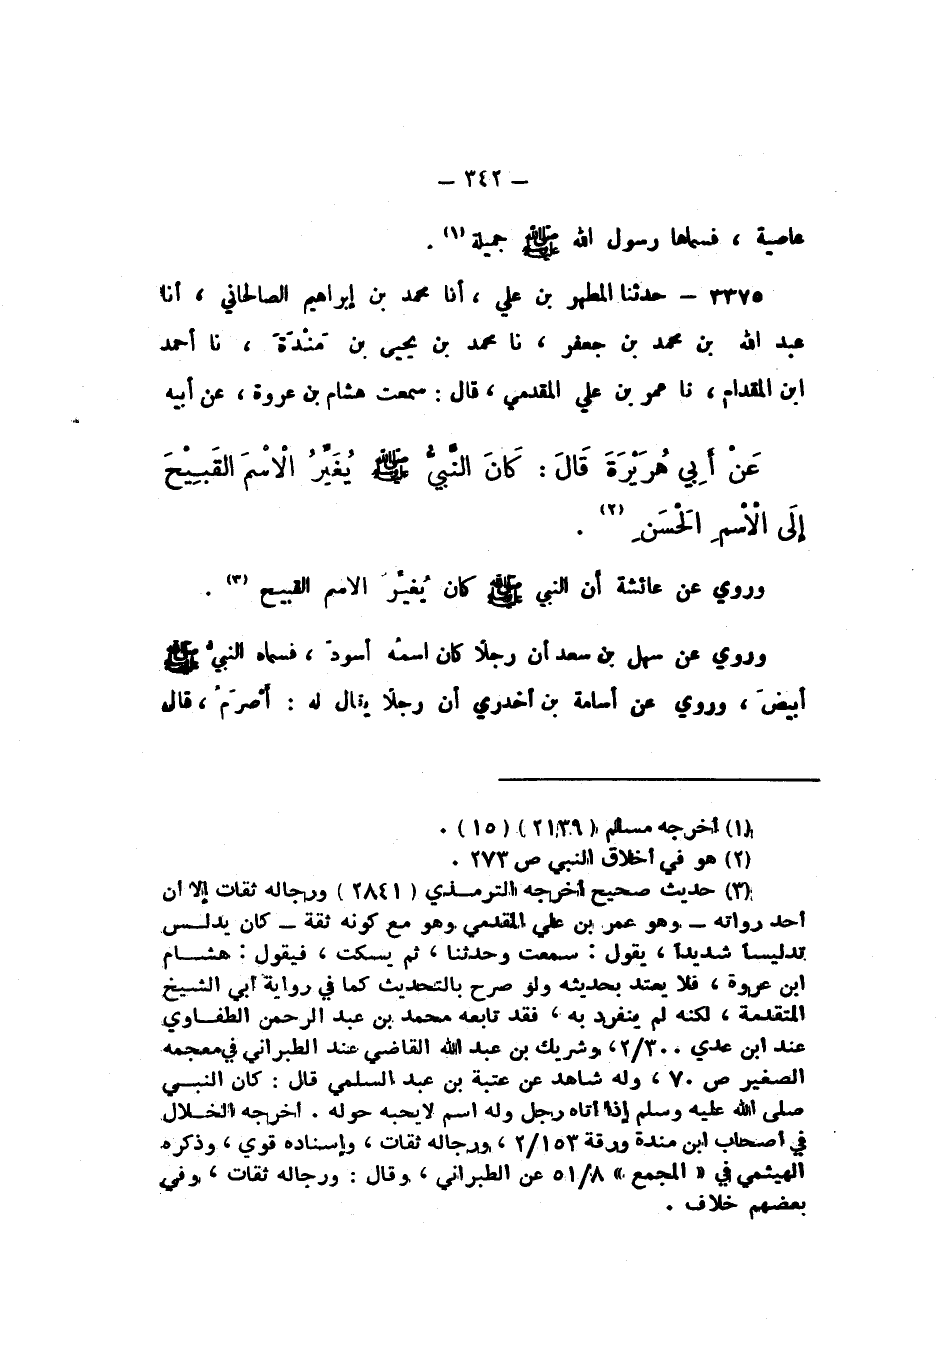 – ٣٤٢ –
عاصية ، فسماها رسول الله ﷺ جميلة (١) .
٣٣٧٥ – حدثنا المطهر بن علي ، أنا محمد بن إبراهيم الصالحاني ، أنا
عبد الله بن محمد بن جعفر ، نا محمد بن يحيى بن مَنْدَةَ ، نا أحمد
ابن المقدام ، نا عمر بن علي المقدمي ، قال : سمعت هشام بن عروة ، عن أبيه
عَنْ أَبِي هُرَيْرَةَ قَالَ : كَانَ النَّبِيُّ ﷺ يُغَيِّرُ الْاسْمَ القَبِيْحَ
إِلَى الْاسْمِ الحَسَنِ (٢) .
وروي عن عائشة أن النبي ﷺ كان يُغيِّرَ الاسم القبيح (٣) .
وروي عن سهل بن سعد أن رجلًا كان اسمُه أسودَ ، فسماه النبيُّ ﷺ
أبيضَ ، وروي عن أسامة بن أخدري أن رجلًا يقال له : أَصْرَمُ ، قال
(١) أخرجه مسلم ( ٢١٣٩ ) ( ١٥ ) .
(٢) هو في أخلاق النبي ص ٢٧٣ .
(٣) حديث صحيح أخرجه الترمذي ( ٢٨٤١ ) ورجاله ثقات إلا أن
أحد رواته – وهو عمر بن علي المقدمي وهو مع كونه ثقة – كان يدلس
تدليساً شديداً ، يقول : سمعت وحدثنا ، ثم يسكت ، فيقول : هشام
ابن عروة ، فلا يعتد بحديثه ولو صرح بالتحديث كما في رواية أبي الشيخ
المتقدمة ، لكنه لم ينفرد به ، فقد تابعه محمد بن عبد الرحمن الطفاوي
عند ابن عدي ٢/٣٠٠ ، وشريك بن عبد الله القاضي عند الطبراني في معجمه
الصغير ص ٧٠ ، وله شاهد عن عتبة بن عبد السلمي قال : كان النبي
صلى الله عليه وسلم إذا أتاه رجل وله اسم لا يحبه حوله . أخرجه الخلال
في أصحاب ابن مندة ورقة ٢/١٥٣ ، ورجاله ثقات ، وإسناده قوي ، وذكره
الهيثمي في « المجمع » ٥١/٨ عن الطبراني ، وقال : ورجاله ثقات ، وفي
بعضهم خلاف .